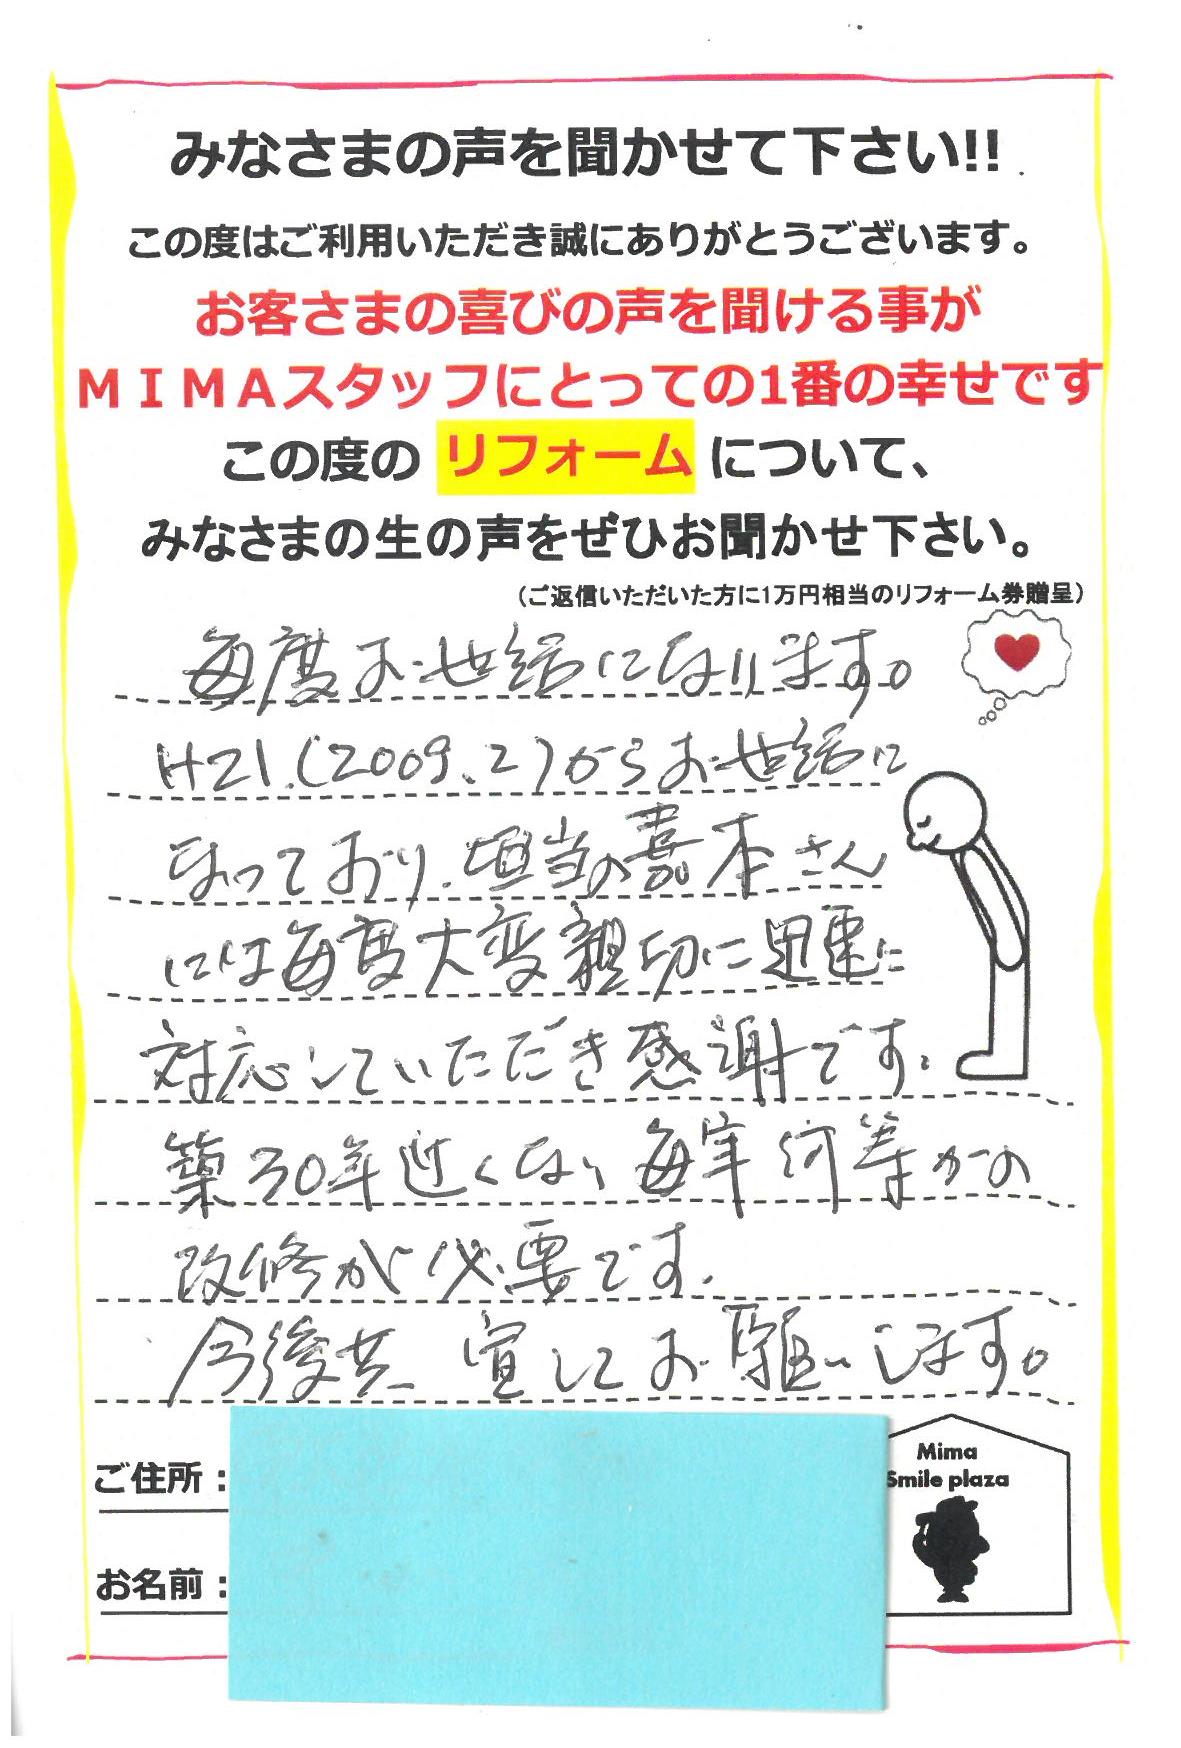 みなさまの声を聞かせて下さい!!
この度はご利用いただき誠にありがとうございます。
お客さまの喜びの声を聞ける事が
ＭＩＭＡスタッフにとっての1番の幸せです
この度の リフォーム について、
みなさまの生の声をぜひお聞かせ下さい。
（ご返信いただいた方に1万円相当のリフォーム券贈呈）
毎度お世話になります。
H21.(2009.2)からお世話に
なっており、担当の嘉本さん
には毎度大変親切に迅速に
対応していただき感謝です。
築30年近くなり毎年何等かの
改修が必要です.
今後共 宜しくお願いします。
ご住所：
お名前：
Mima
Smile plaza